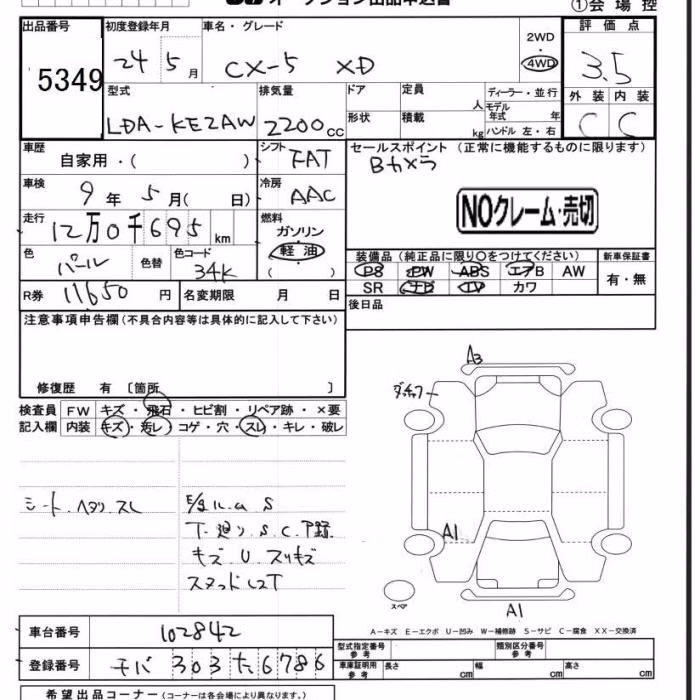 オークション出品申込書
①会場控
出品番号 5349
初度登録年月 24 5月
車名・グレード CX-5 XD
2WD・4WD
評価点 3.5
外装 内装
C C
型式 LDA-KE2AW
排気量 2200cc
ドア 定員 人
形状 積載 kg
ディーラー・並行
モデル年式 年
ハンドル 左・右
車歴 自家用・( )
シフト FAT
車検 9年 5月( 日)
冷房 AAC
走行 12万0千695km
燃料 ガソリン 軽油 ( )
色 パール 色替 色コード 34K
R券 11650円 名変期限 月 日
セールスポイント (正常に機能するものに限ります)
Bカメラ
NOクレーム・売切
装備品 (純正品に限り○をつけてください) 新車保証書
PS PW ABS エアB AW 有・無
SR ナビ TV カワ
後日品
注意事項申告欄 (不具合内容等は具体的に記入して下さい)
修復歴 有 〔箇所 〕
検査員 FW キズ・飛石・ヒビ割・リペア跡・×要
記入欄 内装 キズ・汚レ・コゲ・穴・スレ・キレ・破レ
シート.ヘタリ.スレ
S
下廻り S.C.
キズ U スリキズ
A3
A1
A1
スペア
A-キズ E-エクボ U-凹み W-補修跡 S-サビ C-腐食 XX-交換済
車台番号 102842
登録番号 チバ 303 た 6786
型式指定番号 参考 類別区分番号 参考
車庫証明用 参考 長さ cm 幅 cm 高さ cm
希望出品コーナー (コーナーは各会場により異なります。)